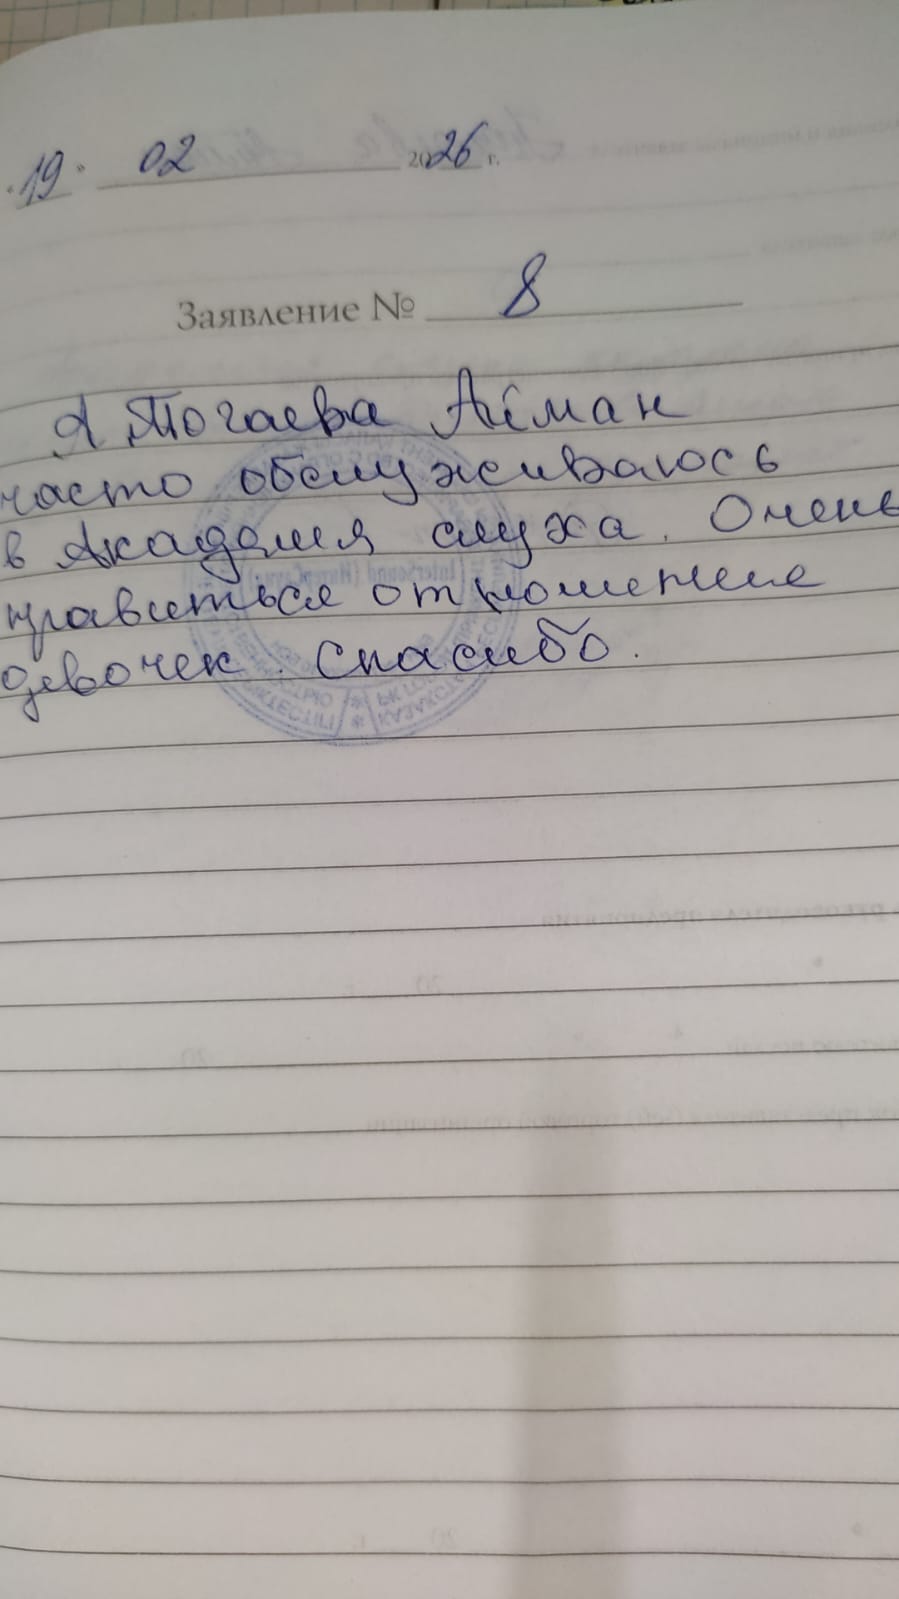 «19» 02 2026 г.
Заявление № 8
Я Тогаева Айман
часто обслуживаюсь
в Академия слуха. Очень
нравиться отношение
девочек. Спасибо.